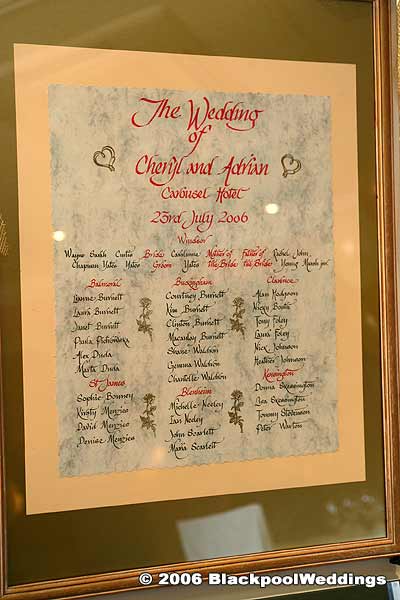 The Wedding
of
Cheryl and Adrian
Carousel Hotel
23rd July 2006
Windsor
Wayne Sarah Curtis Bride Mother of Father of Rachel John
Chapman Yates Yates Groom Yates the Bride the Bride Young
Balmoral
Lianne Burnett
Laura Burnett
Janet Burnett
Paula
Alex Duda
Marta Duda
St James
Sophie Bonney
Kirsty Menzies
David Menzies
Denise Menzies
Buckingham
Courtney Burnett
Kim Burnett
Clinton Burnett
Macauley Burnett
Waldron
Gemma Waldron
Chantelle Waldron
Blenheim
Michelle Neeley
Ian Neeley
John Scarlett
Maria Scarlett
Clarence
Alan Hodgson
Nicky
Tony Foley
Laura Foley
Nick Johnson
Heather Johnson
Kensington
Donna
Lisa
Tommy Stevenson
Peter Warton
© 2006 BlackpoolWeddings